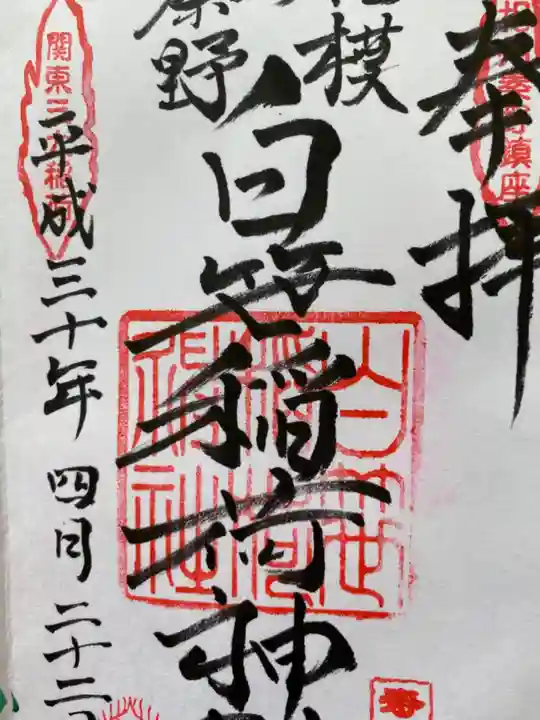 奉拝
相模
秦野
白笹稲荷神
平成三十年四月二十二
白笹
稲荷
神社
関東三
鎮座